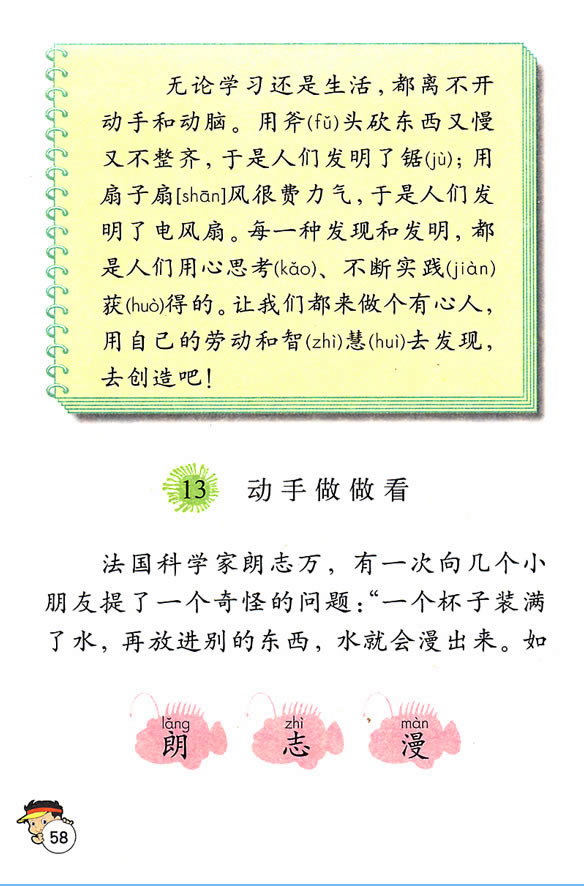 无论学习还是生活，都离不开
动手和动脑。用斧(fǔ)头砍东西又慢
又不整齐，于是人们发明了锯(jù)；用
扇子扇[shān]风很费力气，于是人们发
明了电风扇。每一种发现和发明，都
是人们用心思考(kǎo)、不断实践(jiàn)
获(huò)得的。让我们都来做个有心人，
用自己的劳动和智(zhì)慧(huì)去发现，
去创造吧！
13 动手做做看
法国科学家朗志万，有一次向几个小
朋友提了一个奇怪的问题：“一个杯子装满
了水，再放进别的东西，水就会漫出来。如
lǎng zhì màn
朗 志 漫
58